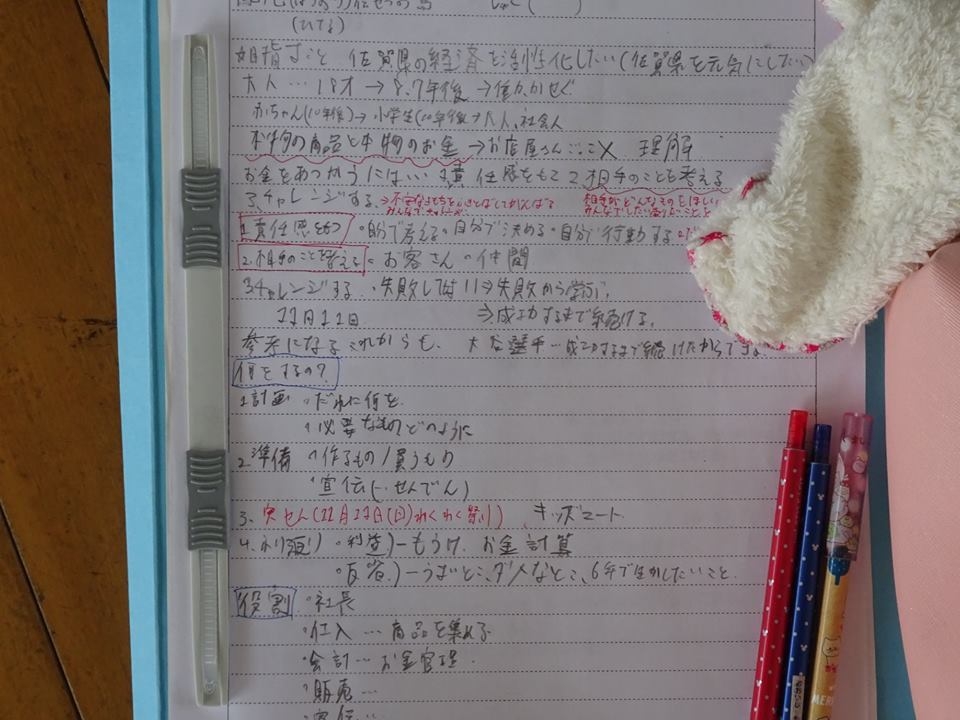 (ひでお)
目指すこと 佐賀県の経済を活性化したい(佐賀県を元気にしたい)
大人…18才→8.7年後→働くかせぐ
赤ちゃん(10年後)→小学生(10年後→大人,社会人
本物の商品と本物のお金→お店屋さんごっこ× 理解
お金をあつかうには 1.責任感をもて 2.相手のことを考える
3.チャレンジする
1.責任感をもつ ・自分で考える・自分で決める・自分で行動する
2.相手のことを考える ・お客さん ・仲間
3.チャレンジする ・失敗してはいい⇒失敗から学ぶ,
11月11日 ⇒成功するまで続ける,
参考になる これからも、大谷翔平…成功するまで続けたからです。
何をするの?
1.計画 ・だれに何を
・必要なものどのように
2.準備 ・作るもの/買うもの
・宣伝(せんでん)
3、(11月12日(日)わくわく祭り) キッズマート
・利益)ーもうけ お金計算
・反省)ーうまいとこ、ダメなとこ、6年で生かしたいこと.
役割 ・社長
・仕入…商品を集める
・会計…お金管理
・販売…
・宣伝…